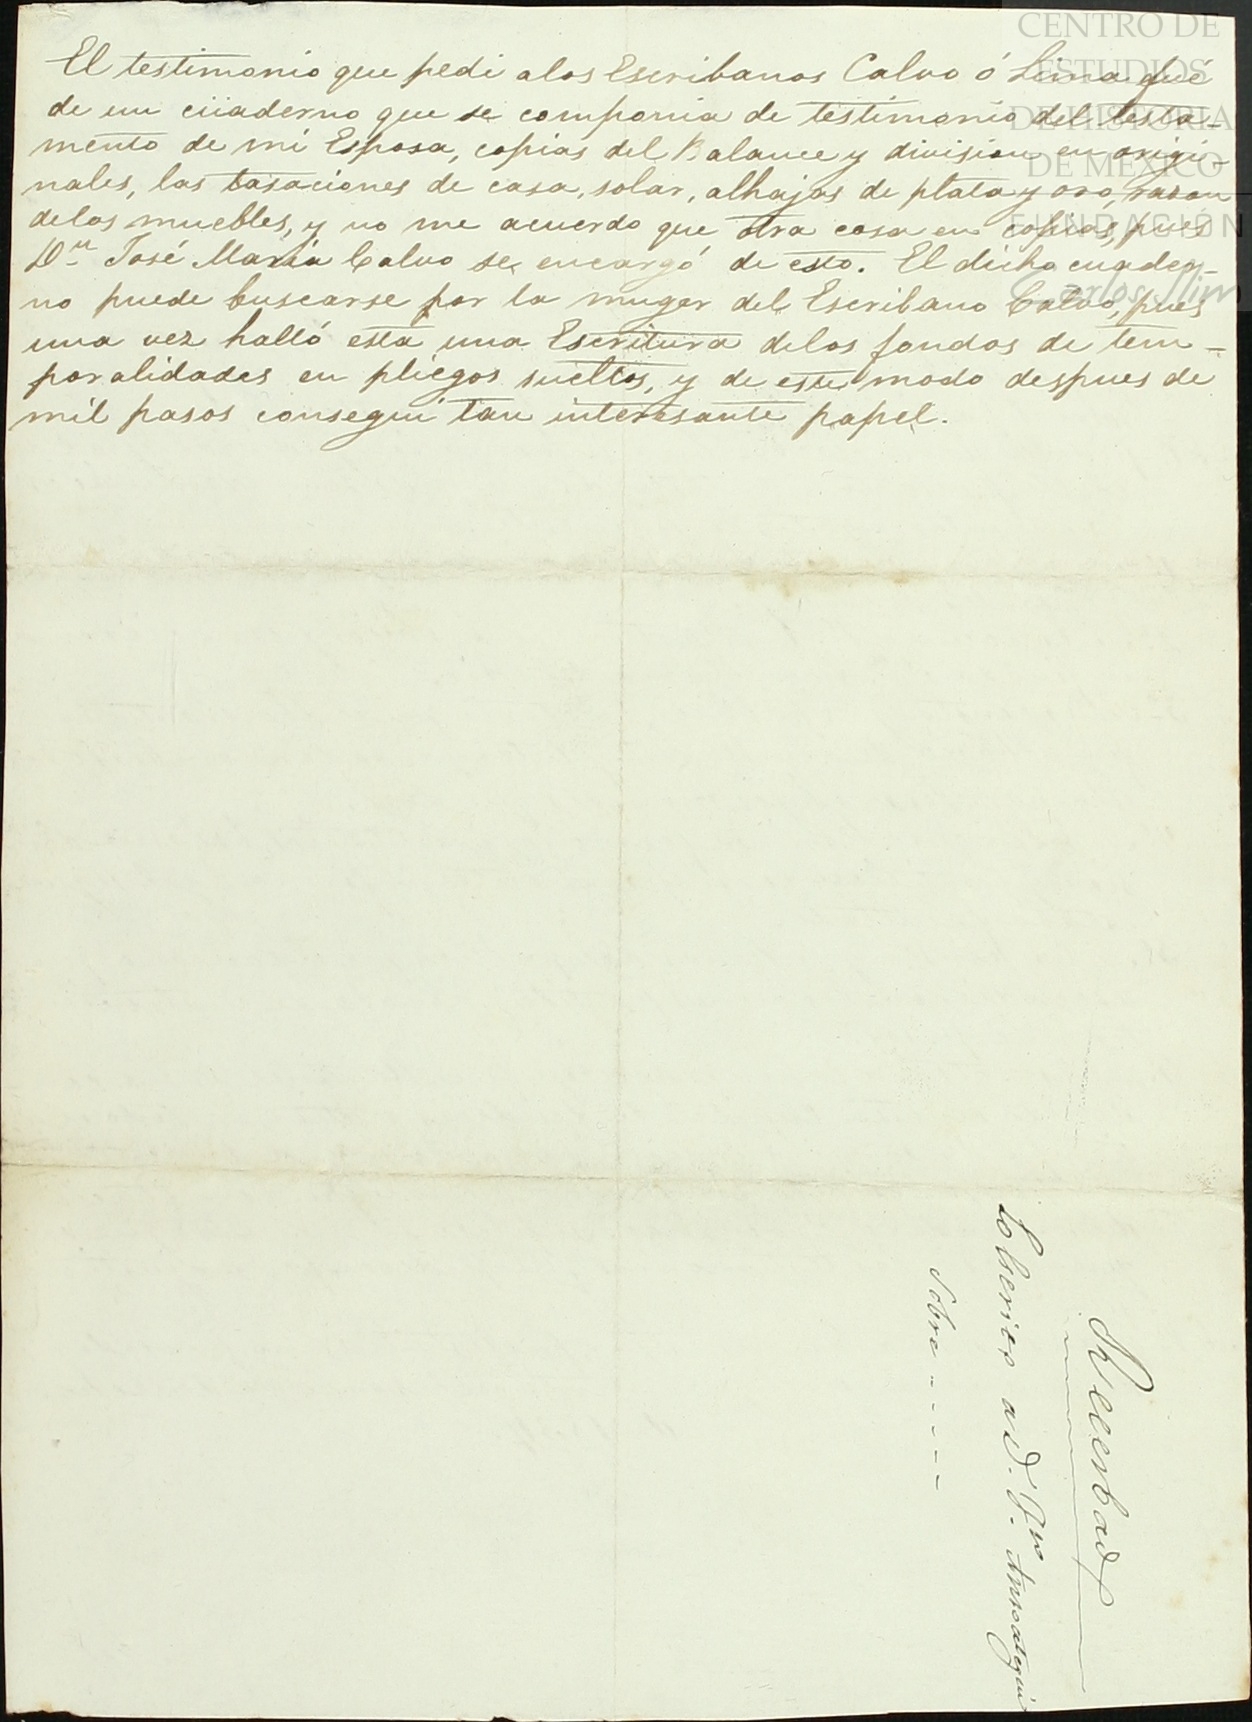 El testimonio que pedi alos Escribanos Calvo ó Lima qué
de un cüaderno que se componia de testimonio del testa-
mento de mi Esposa, copias del Balance y division en origi-
nales, las tasaciones de casa, solar, alhajas de plata y oro, razon
delos muebles, y no me acuerdo que otra cosa en copias, pues
Dn. José Maria Calvo se encargó de esto. El dicho cuader-
no puede buscarse por la muger del Escribano Calvo, pues
una vez halló esta una Escritura delos fondos de tem-
poralidades en pliegos sueltos, y de este modo despues de
mil pasos consegui tan interesante papel.
CENTRO DE
ESTUDIOS
DE HISTORIA
DE MÉXICO
FUNDACIÓN
Carlos Slim
Sobre - - - - -
ad. Fco. Ansoategui